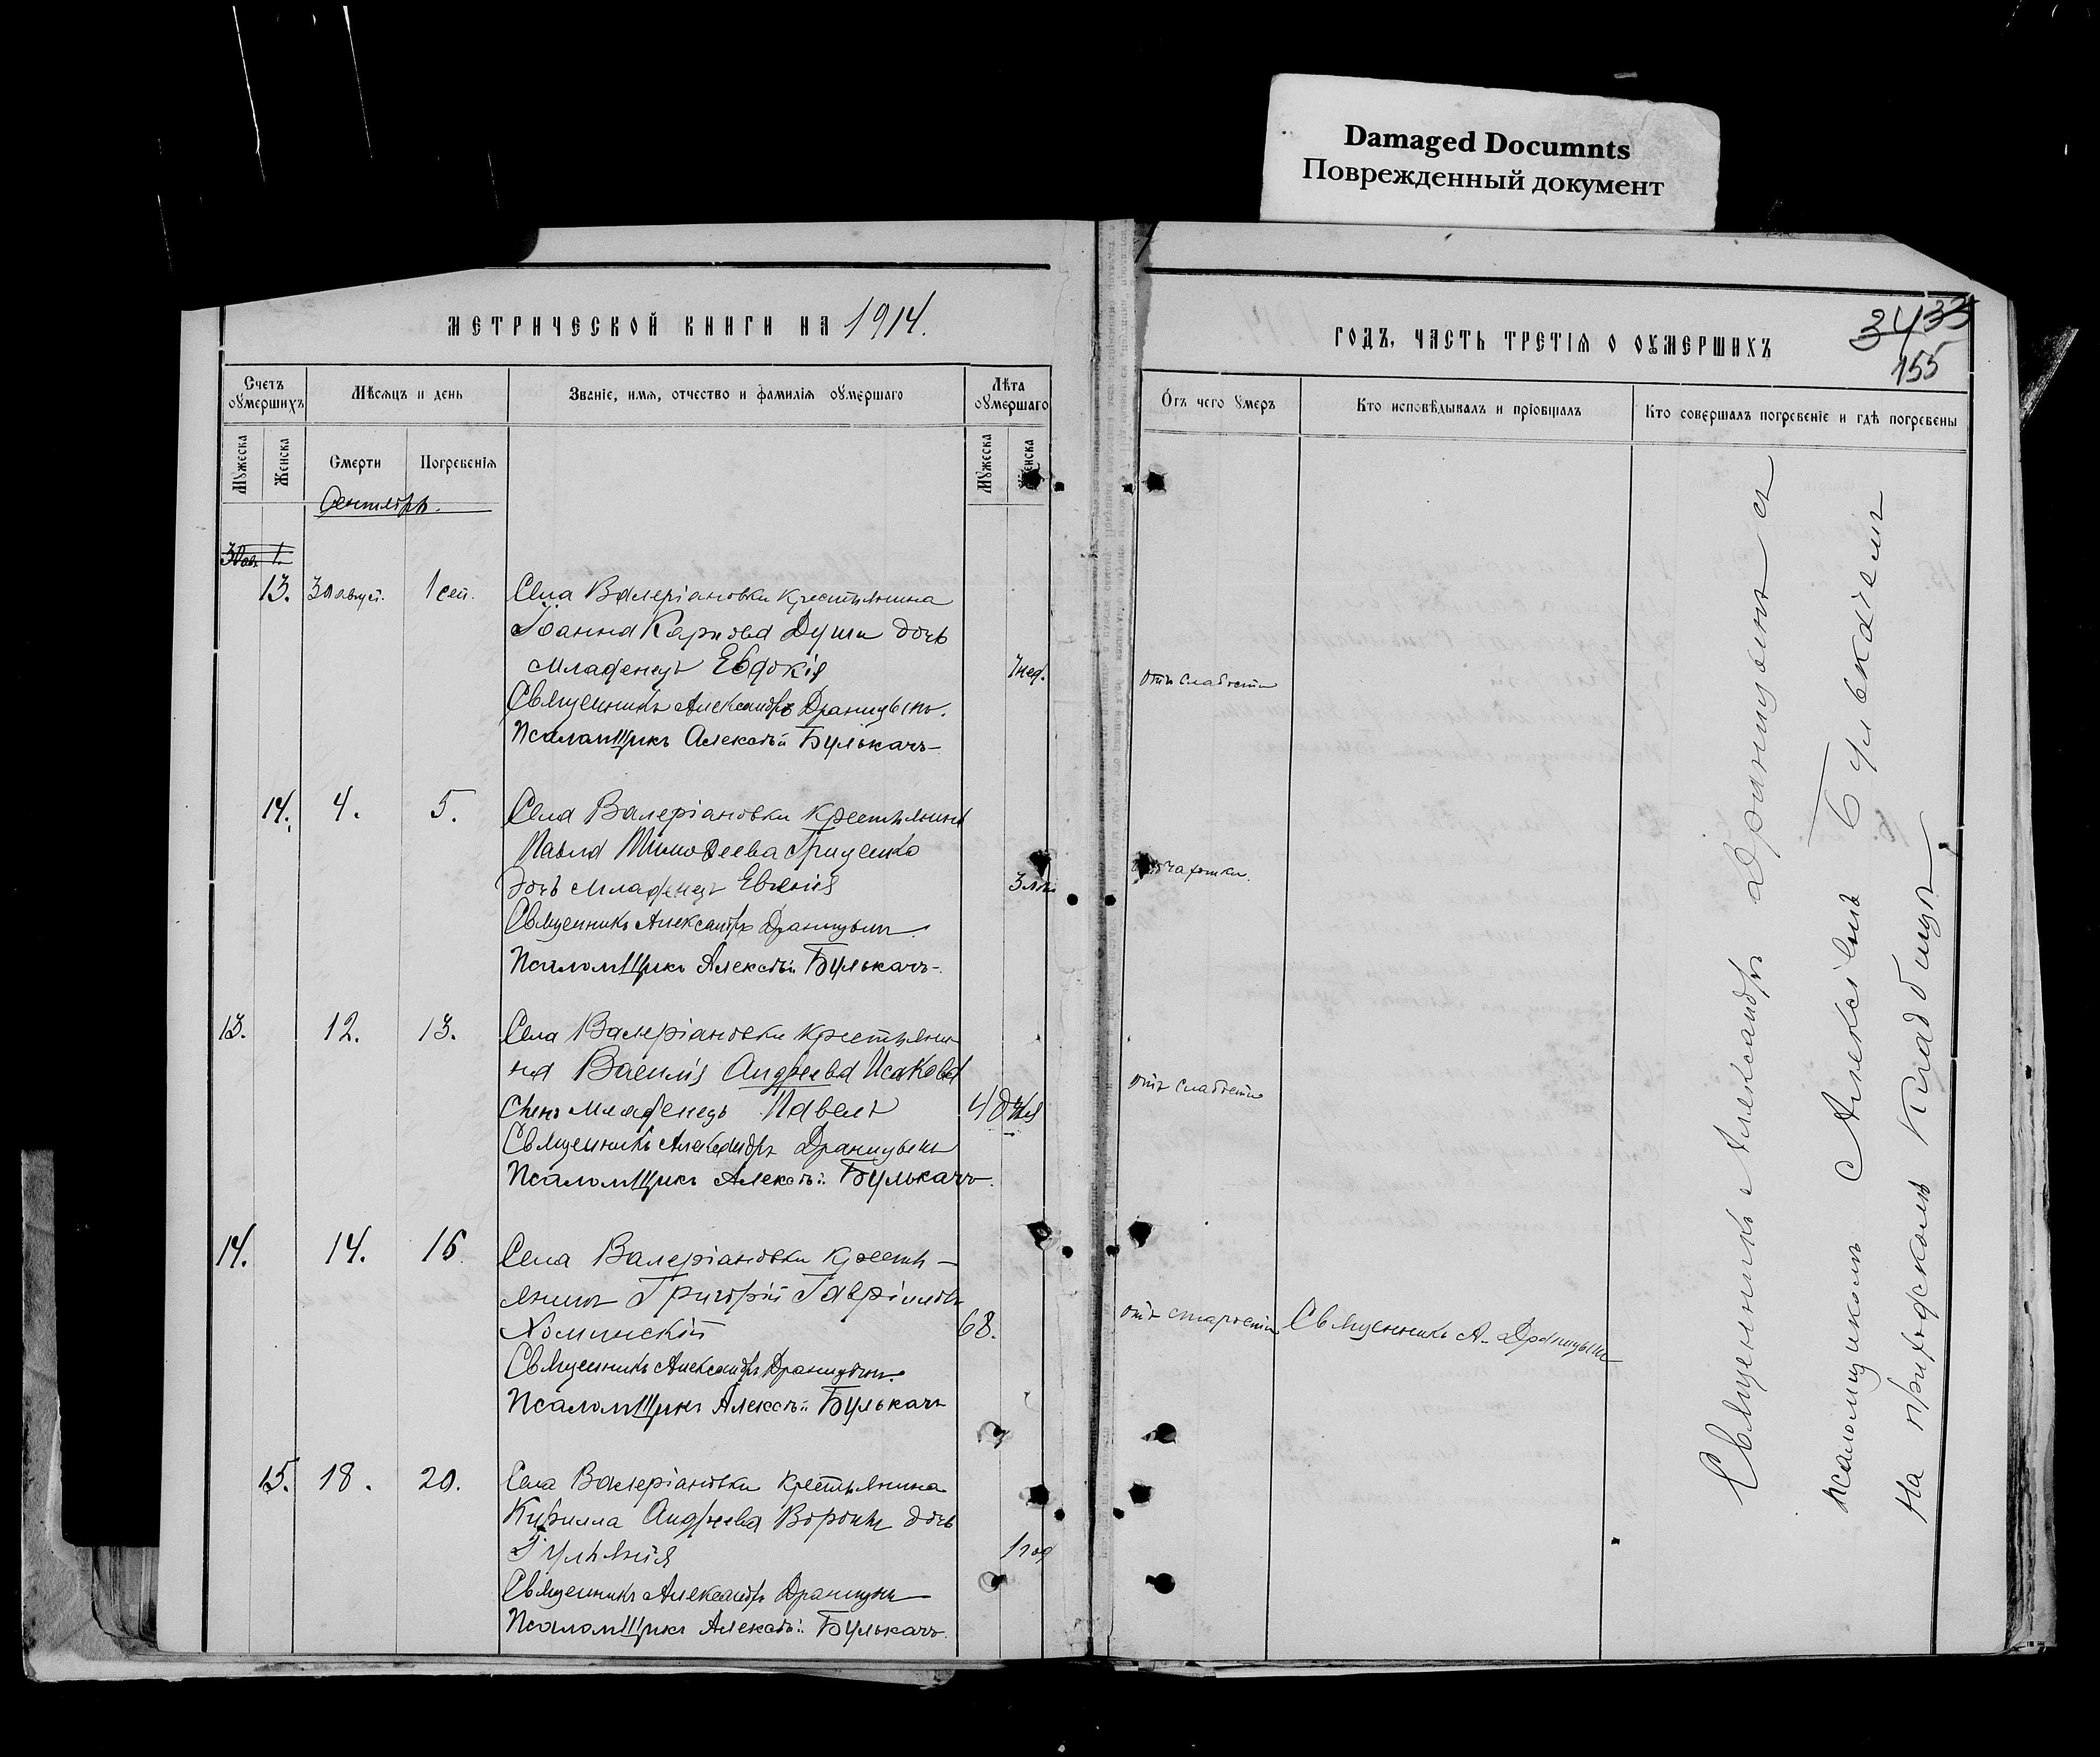 Damaged Documnts
Поврежденный документ
МЕТРИЧЕСКОЙ КНИГИ НА 1914.
ГОДЪ, ЧАСТЬ ТРЕТІЯ О ОУМЕРШИХЪ
34 33
155
Счетъ оумершихъ
Мѣсяцъ и день
Званіе, имя, отчество и фамилія оумершаго
Лѣта оумершаго
Отъ чего умеръ
Кто исповѣдывалъ и пріобщалъ
Кто совершалъ погребеніе и гдѣ погребены
Мужеска
Женска
Смерти
Погребенія
Мужеска
Женска
Сентябрь.
13. 30 август. 1 сен. Села Валеріановки крестьянина
Іоанна Карпова Души дочь
младенецъ Евдокія 7 нед. отъ слабости
Священникъ Александръ Драницынъ.
Псаломщикъ Алексѣй Булькачъ
14. 4. 5. Села Валеріановки крестьянина
Павла Тимоѳеева Гриценко
дочь младенецъ Евгенія
Священникъ Александръ Драницынъ.
Псаломщикъ Алексѣй Булькачъ
13. 12. 13. Села Валеріановки крестьяни-
на Василія Андреева Исакова
сынъ младенецъ Павелъ 4 дня отъ слабости
Священникъ Александръ Драницынъ
Псаломщикъ Алексѣй Булькачъ.
14. 14. 16 Села Валеріановки кресть-
янинъ Григорій Гавріиловъ
Хоминскій 68. отъ старости Священникъ А. Драницынъ
Священникъ Александръ Драницынъ.
Псаломщикъ Алексѣй Булькачъ
15. 18. 20. Села Валеріановки крестьянина
Кирилла Андреева Вороны дочь
Іуліанія 1 год
Священникъ Александръ Драницынъ
Псаломщикъ Алексѣй Булькачъ
Священникъ Александръ Драницынъ съ
псаломщикомъ Алексіемъ Булькачемъ
на приходскомъ кладбищѣ